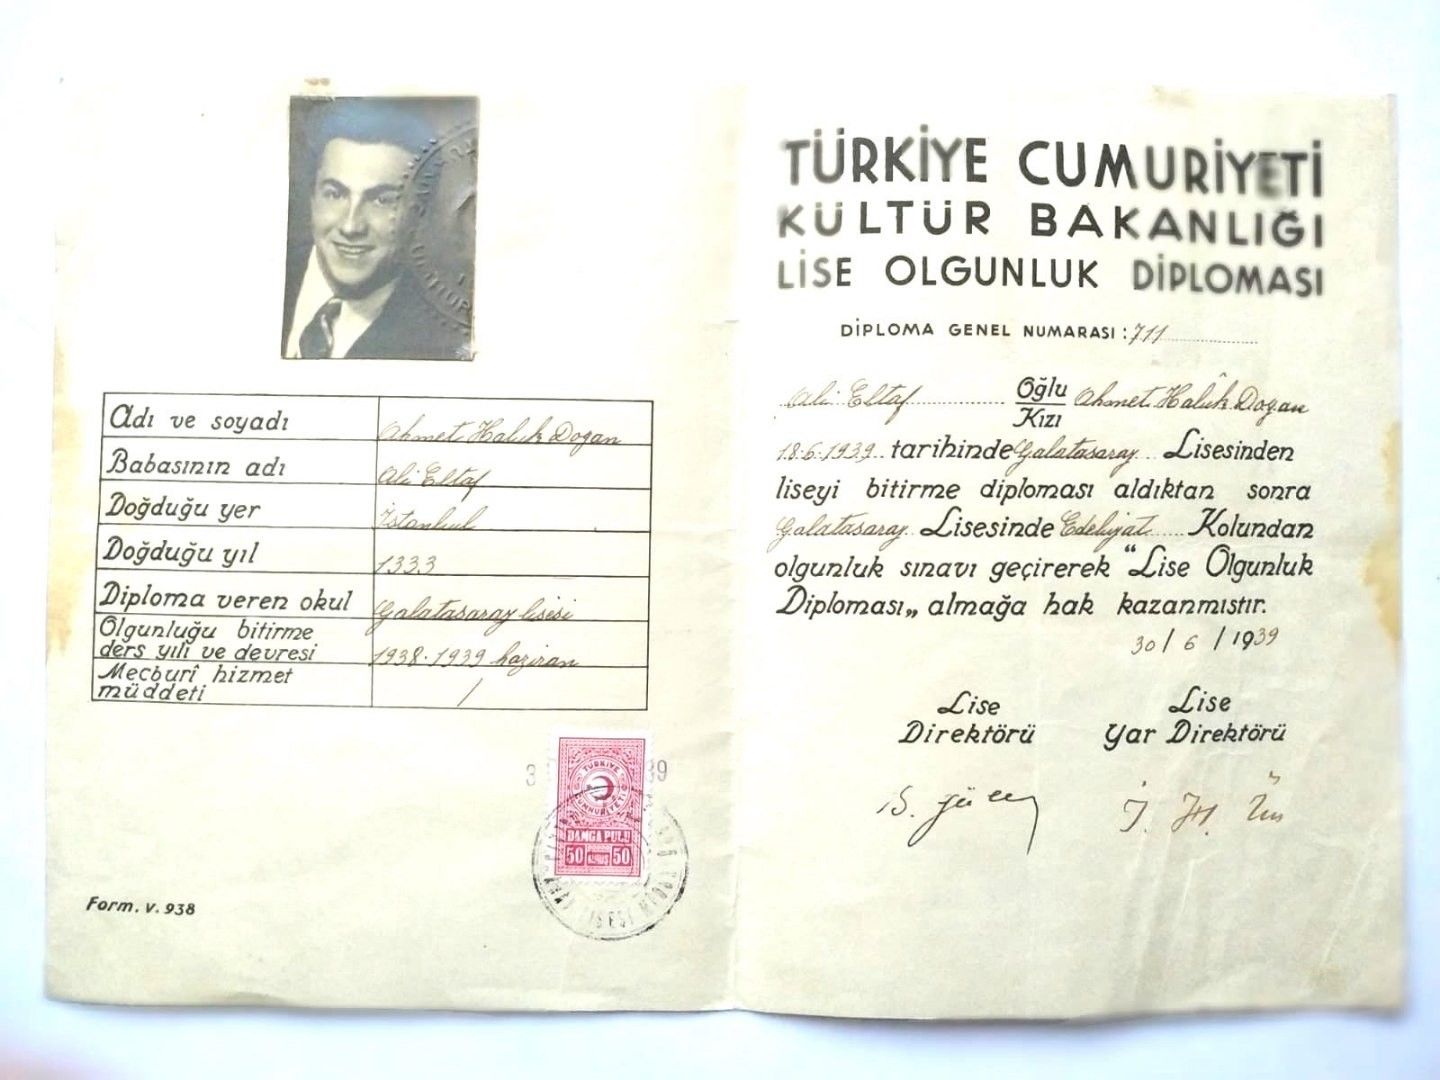 Adı ve soyadı Ahmet Halûk Doğan
Babasının adı Ali Eltaf
Doğduğu yer İstanbul
Doğduğu yıl 1333
Diploma veren okul Galatasaray lisesi
Olgunluğu bitirme
ders yılı ve devresi 1938-1939 haziran
Mecburî hizmet
müddeti /
TÜRKİYE
CUMHURİYETİ
DAMGA PULU
50 KURUŞ 50
Form. v. 938
TÜRKİYE CUMURİYETİ
KÜLTÜR BAKANLIĞI
LİSE OLGUNLUK DİPLOMASI
DİPLOMA GENEL NUMARASI : 711
Ali Eltaf Oğlu Ahmet Halûk Doğan
Kızı
18-6-1939 tarihinde Galatasaray Lisesinden
liseyi bitirme diploması aldıktan sonra
Galatasaray Lisesinde Edebiyat Kolundan
olgunluk sınavı geçirerek "Lise Olgunluk
Diploması„ almağa hak kazanmıştır.
30 / 6 / 1939
Lise Lise
Direktörü Yar Direktörü